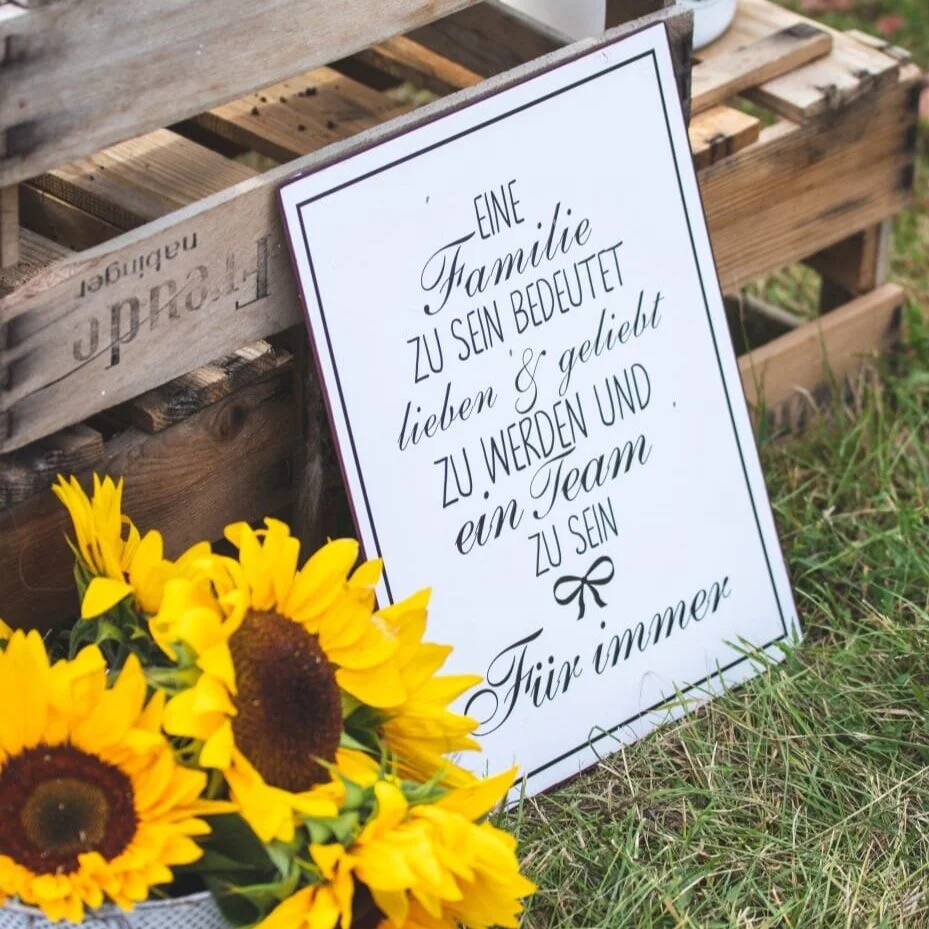 EINE
Familie
ZU SEIN BEDEUTET
lieben & geliebt
ZU WERDEN UND
ein Team
ZU SEIN
Für immer
Freude
nabinger